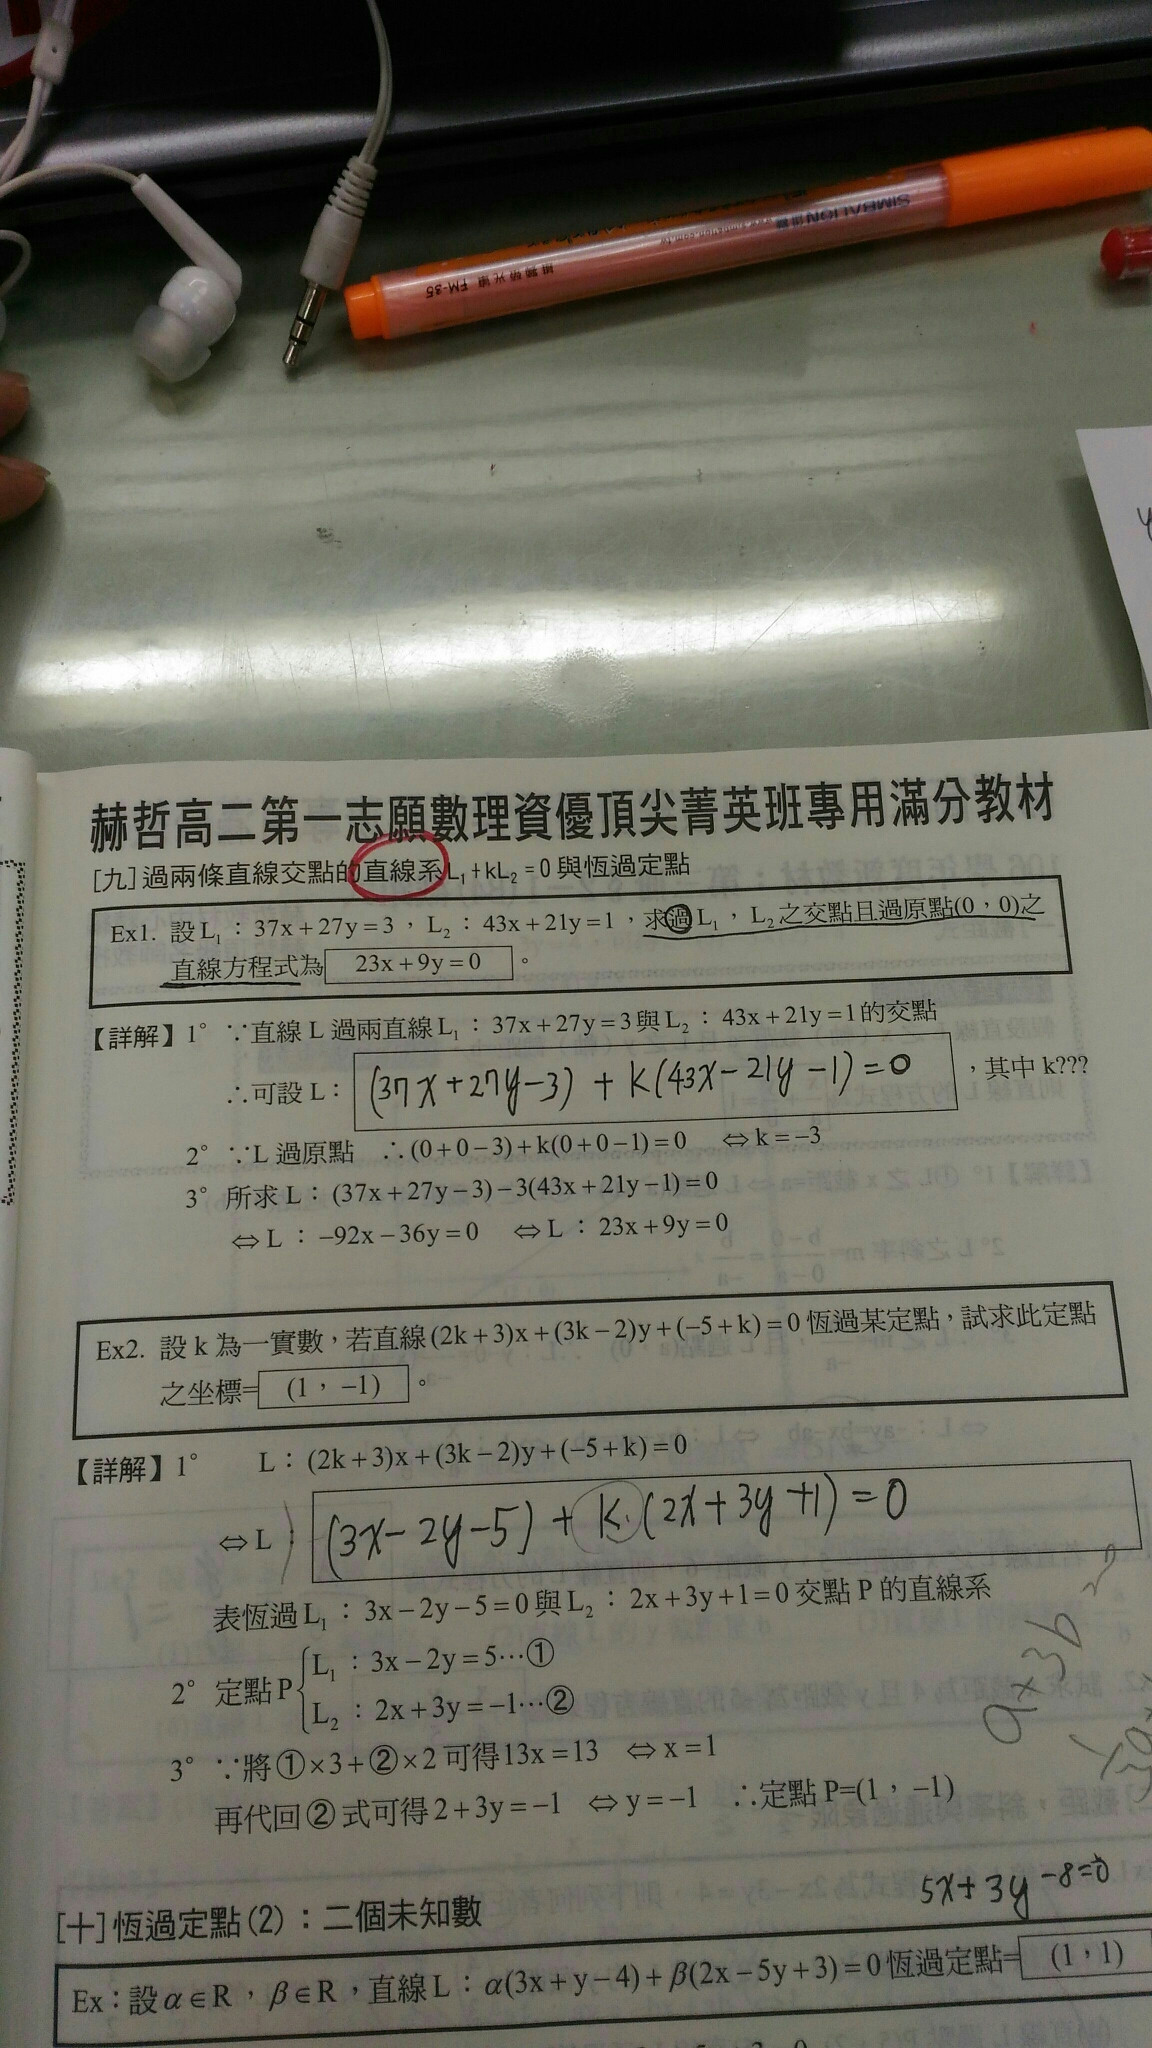 SIMBALION
FM-35
赫哲高二第一志願數理資優頂尖菁英班專用滿分教材
[九]過兩條直線交點的直線系L₁+kL₂=0與恆過定點
Ex1. 設L₁：37x+27y=3，L₂：43x+21y=1，求過L₁，L₂之交點且過原點(0，0)之
直線方程式為 23x+9y=0 。
【詳解】1° ∵直線L過兩直線L₁：37x+27y=3與L₂：43x+21y=1的交點
∴可設L： (37x+27y-3) + k(43x-21y-1)=0 ，其中k???
2° ∵L過原點 ∴(0+0-3)+k(0+0-1)=0 ⇔k=-3
3° 所求L：(37x+27y-3)-3(43x+21y-1)=0
⇔L：-92x-36y=0 ⇔L：23x+9y=0
Ex2. 設k為一實數，若直線(2k+3)x+(3k-2)y+(-5+k)=0恆過某定點，試求此定點
之坐標= (1，-1) 。
【詳解】1° L：(2k+3)x+(3k-2)y+(-5+k)=0
⇔L： (3x-2y-5) + k·(2x+3y+1)=0
表恆過L₁：3x-2y-5=0與L₂：2x+3y+1=0交點P的直線系
2° 定點P{L₁：3x-2y=5…①
L₂：2x+3y=-1…②
3° ∵將①×3+②×2可得13x=13 ⇔x=1
再代回②式可得2+3y=-1 ⇔y=-1 ∴定點P=(1，-1)
5x+3y-8=0
[十]恆過定點(2)：二個未知數
Ex：設α∈R，β∈R，直線L：α(3x+y-4)+β(2x-5y+3)=0恆過定點= (1，1)